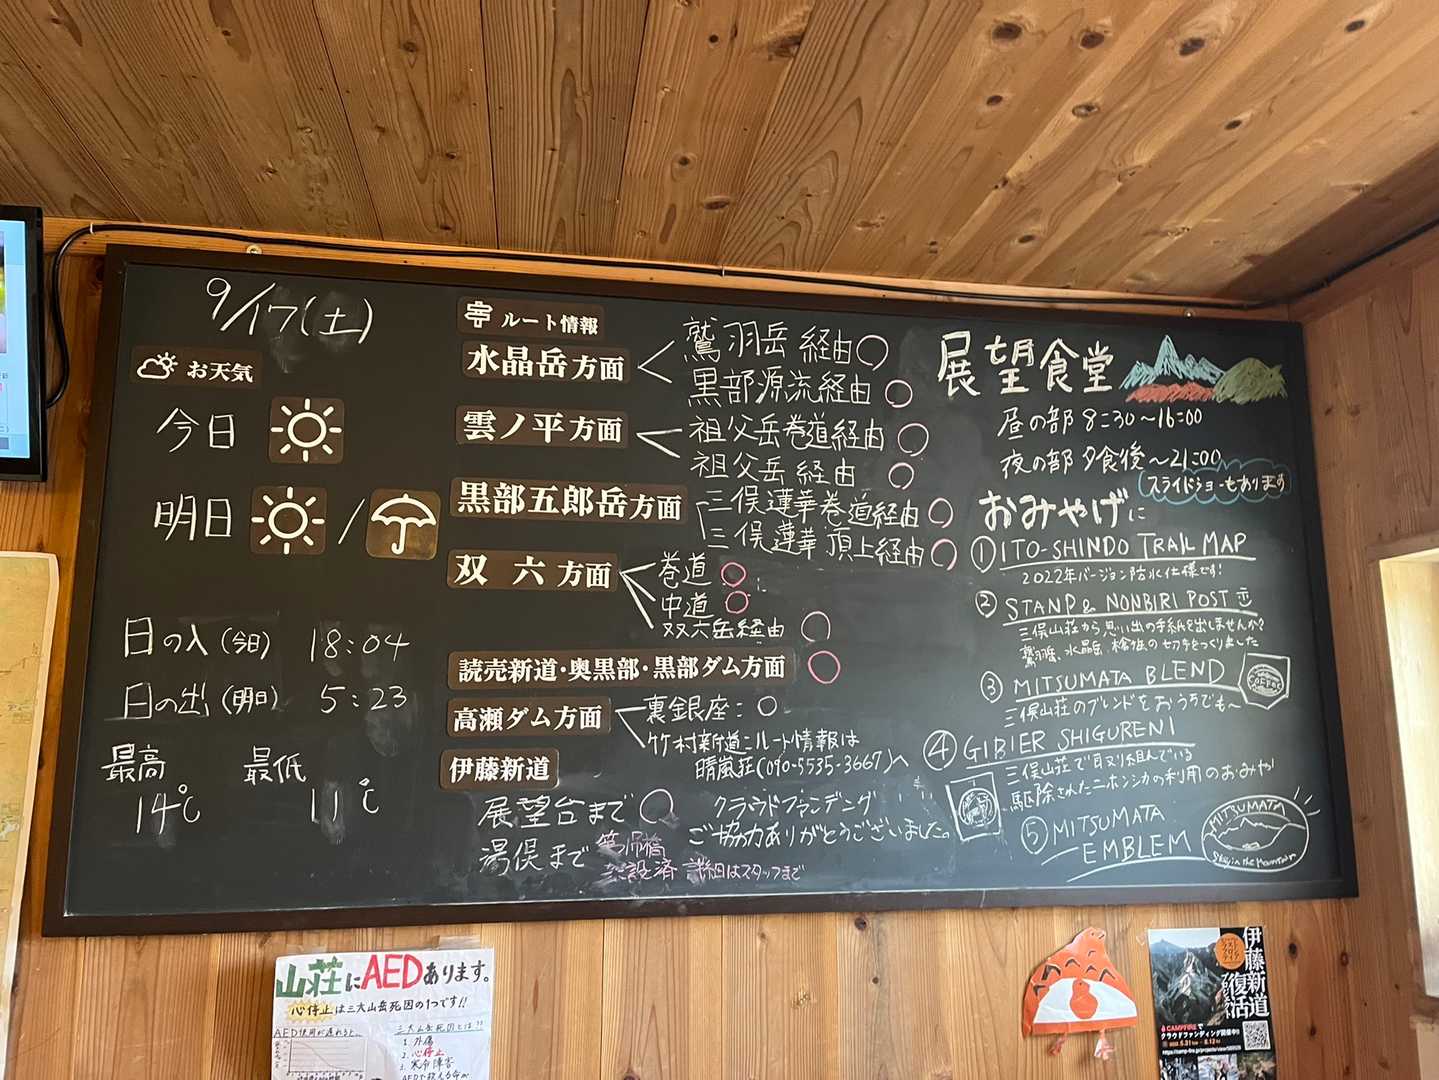 9/17(土)
お天気
今日
明日 /
日の入(今日) 18:04
日の出(明日) 5:23
最高 最低
14℃ 11℃
ルート情報
水晶岳方面
鷲羽岳 経由○
黒部源流経由○
雲ノ平方面
祖父岳巻道経由○
祖父岳 経由○
黒部五郎岳方面
三俣蓮華巻道経由○
三俣蓮華頂上経由○
双六方面
巻道○
中道○
双六岳経由○
読売新道・奥黒部・黒部ダム方面○
高瀬ダム方面
裏銀座:○
竹村新道:ルート情報は
晴嵐荘(090-5535-3667)へ
伊藤新道
展望台まで○
湯俣まで
設済 詳細はスタッフまで
クラウドファンディング
ご協力ありがとうございました。
展望食堂
昼の部 8:30〜16:00
夜の部 夕食後〜21:00
スライドショーもあります
おみやげに
①ITO-SHINDO TRAIL MAP
2022年バージョン防水仕様です!
②STAND & NONBIRI POST
三俣山荘から思い出の手紙を出しませんか?
鷲羽岳、水晶岳、槍ヶ岳の切手をつくりました
③MITSUMATA BLEND
COFFEE
三俣山荘のブレンドをおうちでも〜
④GIBIER SHIGURENI
三俣山荘で取り組んでいる
駆除されたニホンジカの利用のおみや
⑤MITSUMATA
EMBLEM
MITSUMATA
Stay in the Mountain
山荘にAEDあります。
心停止は三大山岳死因の1つです!!
AED使用が遅れると、
三大山岳死因とは??
1. 外傷
2. 心停止
3. 寒冷障害
伊藤新道
復活
プロジェクト
CAMPFIREで
クラウドファンディング開催中!!